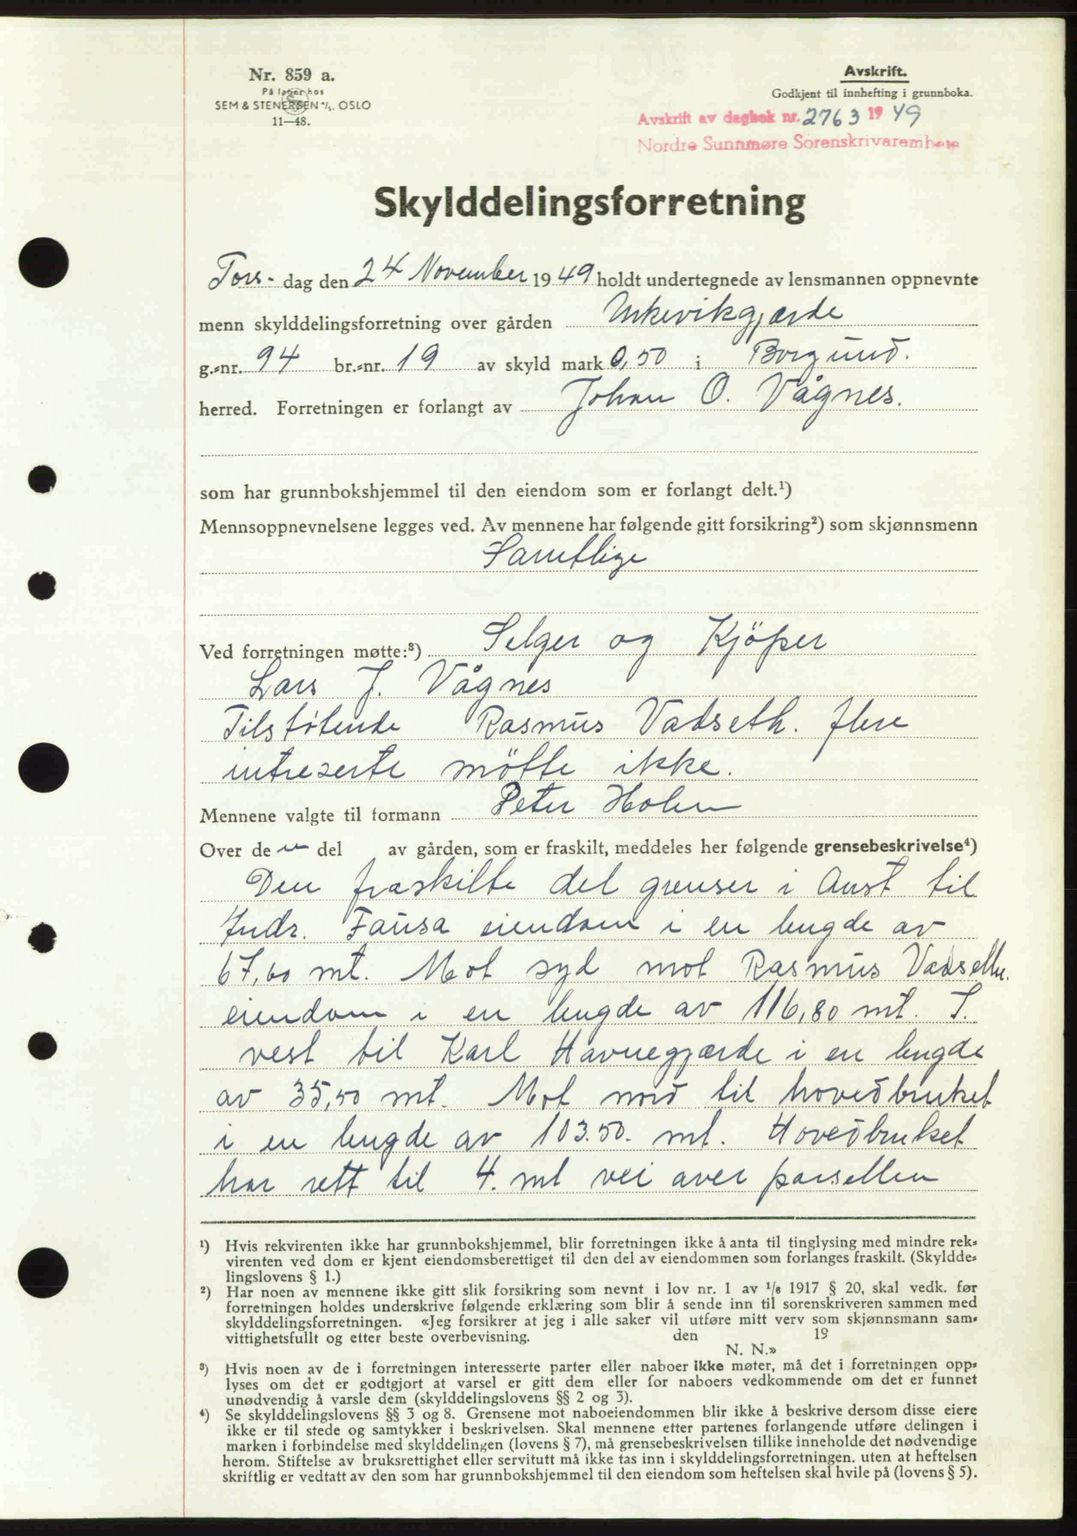 Nr. 859 a.
På lager hos
SEM & STENERSEN A/S. OSLO
11—48.
Avskrift.
Godkjent til innhefting i grunnboka.
Avskrift av dagbok nr. 2763 1949
Nordre Sunnmøre Sorenskrivarembete
Skylddelingsforretning
Tors- dag den 24 November 1949 holdt undertegnede av lensmannen oppnevnte
menn skylddelingsforretning over gården
g.-nr. 94 br.-nr. 19 av skyld mark 0,50 i Borgund.
herred. Forretningen er forlangt av Johan O. Vågnes.
som har grunnbokshjemmel til den eiendom som er forlangt delt.¹)
Mennsoppnevnelsene legges ved. Av mennene har følgende gitt forsikring²) som skjønnsmenn
Samtlige
Ved forretningen møtte:³) Selger og Kjöper
Lars J. Vågnes
Tilstøtende Rasmus Vadseth. flere
intreserte mötte ikke.
Mennene valgte til formann Peter Holen
Over de n del av gården, som er fraskilt, meddeles her følgende grensebeskrivelse⁴)
Den fraskilte del grenser i Aust til
Indr. Fausa eiendom i en lengde av
67,60 mt. Mot syd mot Rasmus Vadseths.
eiendom i en lengde av 116,80 mt. I.
vest til Karl Havnegjærde i en lengde
av 35,50 mt. Mot nord til hovedbruket
i en lengde av 103.50. mt. Hovedbruket
har rett til 4. mt vei over parsellen
¹) Hvis rekvirenten ikke har grunnbokshjemmel, blir forretningen ikke å anta til tinglysing med mindre rek-
virenten ved dom er kjent eiendomsberettiget til den del av eiendommen som forlanges fraskilt. (Skyldde-
lingslovens § 1.)
²) Har noen av mennene ikke gitt slik forsikring som nevnt i lov nr. 1 av 1/6 1917 § 20, skal vedk. før
forretningen holdes underskrive følgende erklæring som blir å sende inn til sorenskriveren sammen med
skylddelingsforretningen. «Jeg forsikrer at jeg i alle saker vil utføre mitt verv som skjønnsmann sam-
vittighetsfullt og etter beste overbevisning. den 19
N. N.»
³) Hvis noen av de i forretningen interesserte parter eller naboer ikke møter, må det i forretningen opp-
lyses om det er godtgjort at varsel er gitt dem eller for naboers vedkommende om det er funnet
unødvendig å varsle dem (skylddelingslovens §§ 2 og 3).
⁴) Se skylddelingslovens §§ 3 og 8. Grensene mot naboeiendommen blir ikke å beskrive dersom disse eiere
ikke er til stede og samtykker i beskrivelsen. Skal mennene etter partenes forlangende utføre delingen i
marken i forbindelse med skylddelingen (lovens § 7), må grensebeskrivelsen tillike inneholde det nødvendige
herom. Stiftelse av bruksrettighet eller servitutt må ikke tas inn i skylddelingsforretningen. uten at heftelsen
skriftlig er vedtatt av den som har grunnbokshjemmel til den eiendom som heftelsen skal hvile på (lovens § 5).